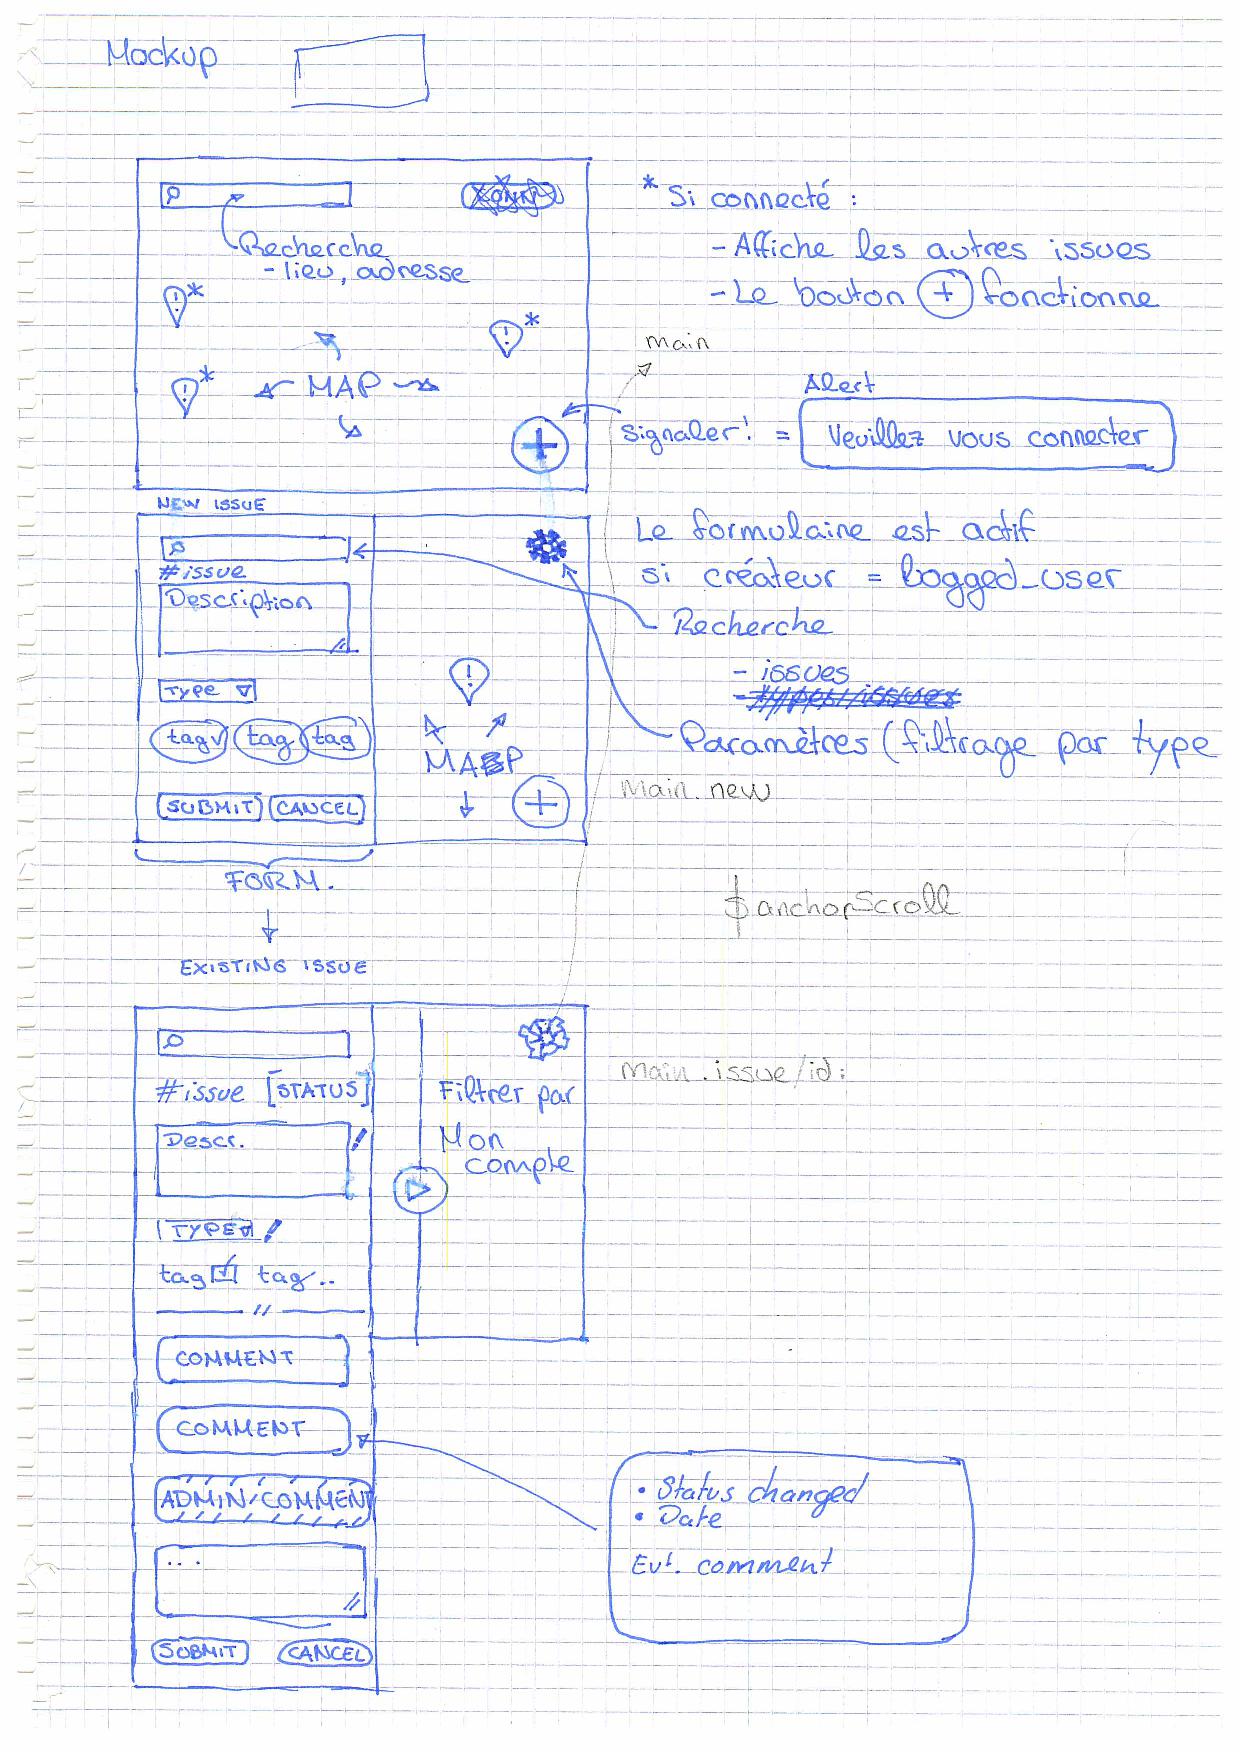 Mockup
* Si connecté :
Recherche
- lieu, adresse
- Affiche les autres issues
- Le bouton + fonctionne
!*
!*
!*
MAP
main
Alert
+
Signaler! = Veuillez vous connecter
NEW ISSUE
#issue
Description
Type
tag tag tag
SUBMIT CANCEL
!
MAP
+
Le formulaire est actif
si créateur = logged_user
Recherche
- issues
Paramètres (filtrage par type
main.new
FORM.
$anchorScroll
EXISTING ISSUE
#issue [STATUS]
Descr.
TYPE
tag tag..
Filtrer par
Mon
compte
main.issue/id:
COMMENT
COMMENT
ADMIN/COMMENT
...
SUBMIT CANCEL
• Status changed
• Date
Evt. comment